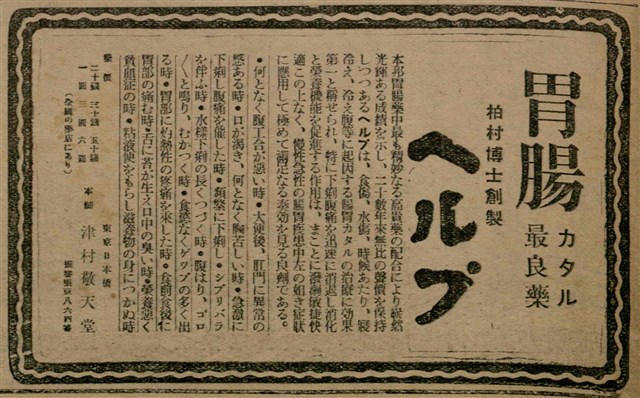 胃腸カタル最良藥
柏村博士創製
ヘルプ
本邦胃腸藥中最も精妙なる高貴藥の配合により嶄然
光輝ある成績を示し、二十數年來無比の聲價を保持
しつゝあるヘルプは、食傷、水傷、時候あたり、寢
冷え、冷え腹等に起因する腸胃カタルの治療に効果
第一と稱せられ、特に下痢腹痛を迅速に消退し消化
と榮養機能を促進する作用は、まことに機溂敏捷快
適この上なく、慢性急性の腸胃疾患中左の如き症狀
に應用して極めて滿足なる奏効を見る良劑である。
•何となく腹工合が惡い時•大便後、肛門に異常の
感ある時•口が渇き、何となく胸苦しい時•急激に
下痢し腹痛を催した時•頻繁に下痢し•シブリバラ
を伴ふ時•水樣下痢の長くつづく時•腹はり、ゴロ
〱と鳴り、むかつく時•食慾なくゲップの多く出
る時•胃部に灼熱性の疼痛を來した時•食前食後に
胃部の痛む時•舌に苔が生え口中の臭い時•榮養惡く
貧血症の時•粘液便をもらし滋養物の身につかぬ時
藥價
二十錢 三十錢 五十錢
一圓 三圓 六圓
(全國の藥店にあり)
本舖
東京日本橋
津村敬天堂
振替東京八六四番